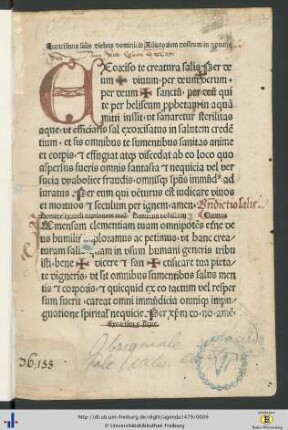 Exorcismus salis diebus dominicis Adiutorium nostrum in nomine
Exorciso te creatura salis per deum
✠ viuum per deum verum
per deum ✠ sanctum per eum qui
te per heliseum prophetam in aquam
mitti iussit vt sanaretur sterilitas
aque vt efficiaris sal exorcisatus in salutem creden
tium et sis omnibus te sumentibus sanitas anime
et corporis et effugiat atque discedat ab eo loco quo
aspersus fueris omnis fantasia et nequicia vel ver
sucia dyabolice fraudis omnisque spiritus immundus ad
iuratus Per eum qui venturus est iudicare viuos
et mortuos et seculum per ignem amen Benedictio salis
Immensam clementiam tuam omnipotens eterne de
us humiliter imploramus ac petimus vt hanc crea
turam salis quam in vsum humani generis tribu
isti bene ✠ dicere et san ✠ ctificare tua pieta
te digneris vt sit omnibus sumentibus salus men
tis et corporis et quicquid ex eo tactum vel resper
sum fuerit careat omni immundicia omnique impu
gnatione spiritalis nequicie Per
Exorcismus aque
Obsequiale
36,133
http://dl.ub.uni-freiburg.de/diglit/agenda1479/0009
© Universitätsbibliothek Freiburg